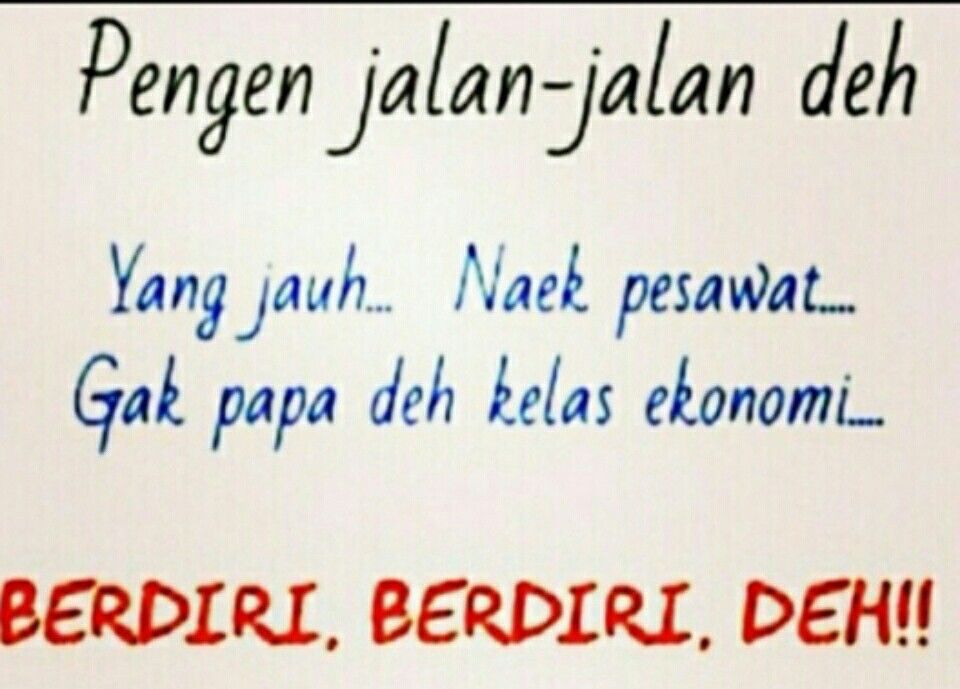 Pengen jalan-jalan deh
Yang jauh... Naek pesawat....
Gak papa deh kelas ekonomi....
BERDIRI, BERDIRI, DEH!!